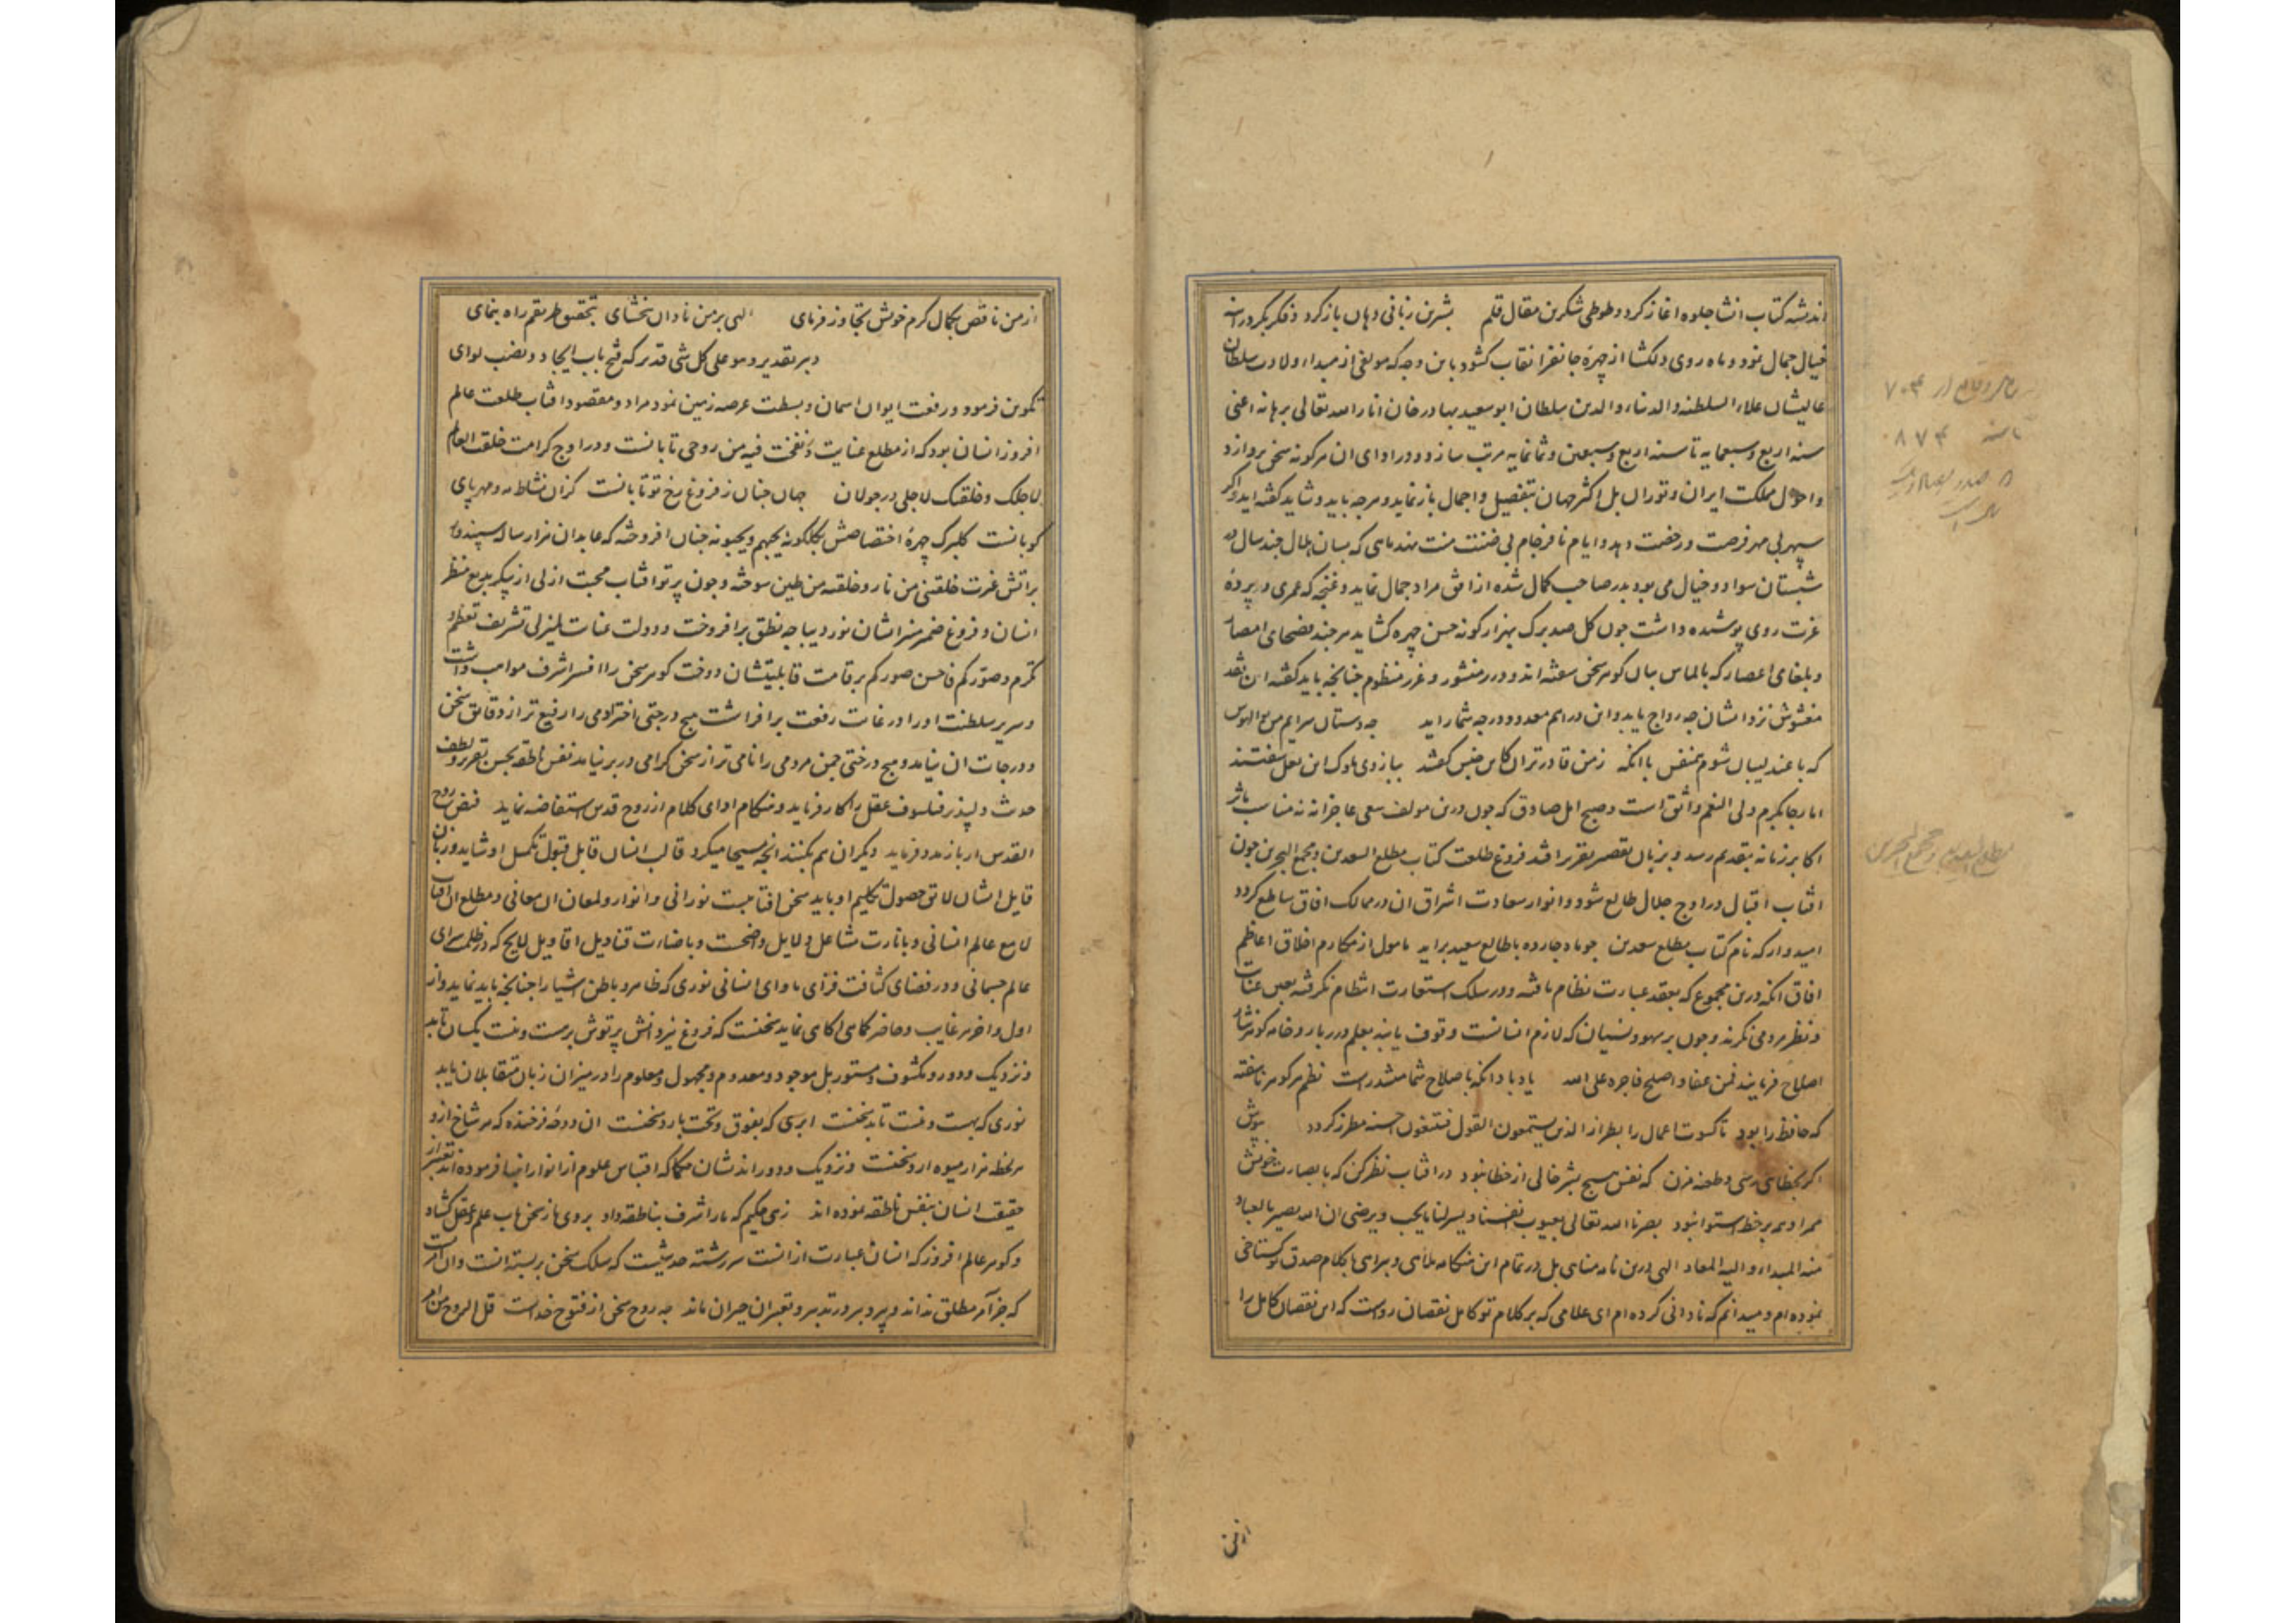 اندیشه کتاب انشا جلوه اغاز کرد و طوطی شکرین مقال قلم بشیرین زبانی دهان باز کرد و فکر بکر در اینه
خیال جمال نمود و ماه روی دلکشا از چهره جانفزا نقاب کشود باین وجه که مولفی از مبداء ولادت سلطان
عالیشان علاء السلطنه والدنیا والدین سلطان ابو سعید بهادر خان انار الله تعالی برهانه اعنی
سنه اربع و سبعمایه تا سنه اربع و سبعین و ثمانمایه مرتب سازد و در ادای ان هر کونه سخن پردازد
و احوال مملکت ایران و توران بل اکثر جهان بتفصیل و اجمال باز نماید و هرچه باید و شاید کفته اید و اکر
سپهر بی مهر فرصت و رخصت دهد و ایام نافرجام بی ضنت منت نهد ماهی که بسان هلال چند سال در
شبستان سواد و خیال می بود بدر صاحب کمال شده از افق مراد جمال نماید و غنچه که عمری در پرده
عزت روی پوشیده داشت چون کل صد برک بهزار کونه حسن چهره کشاید هر چند فصحای امصار
و بلغای اعصار که بالماس بیان کوهر سخن سفته اند و درر منثور و غرر منظوم چنانچه باید کفته این نقد
مغشوش نزد ایشان چه رواج یابد و این دراهم معدود در چه شمار اید چه دستان سرایم من بوالهوس
که با عندلیبان شوم هم نفس با انکه زمن قادرتران کاین جنس کفتند ببازوی ناوک این لعل سفتند
اما رجا بکرم ولی النعم واثق است و صبح امل صادق که چون درین مولف سعی عاجزانه نه مناسب ماثر
اکابر زمانه بتقدیم رسد و بزبان تقصیر تقریر افتد فروغ طلعت کتاب مطلع السعدین و مجمع البحرین چون
افتاب اقبال در اوج جلال طالع شود و انوار سعادت اشراق ان در ممالک افاق ساطع کردد
امیدوار که نام کتاب مطلع سعدین چو ماه چارده با طالع سعید براید مامول از مکارم اخلاق اعاظم
افاق انکه درین مجموع که بعقد عبارت نظام یافته و در سلک استعارت انتظام نکرفته بعین عنایت
و نظر مرومی نکرند و چون بر سهو و نسیان که لازم انسانست وقوف یابند بقلم درربار و خامه کوهر نثار
اصلاح فرمایند فمن عفا و اصلح فاجره علی الله یا باد انکه باصلاح شما میسر است نظم هر کوهر ناسفته
که حافظ را بود تا کسوت اعمال را بطراز الذین یستمعون القول فیتبعون احسنه مطرز کردد بپوش
اکر بخطای رسی و طعنه مزن که نفس هیچ بشر خالی از خطا نبود در افتاب نظر کن که با بصارت خویش
ممر او همه بر خط استوا نبود بصرنا الله تعالی بعیوب نفسنا و یسر لنا مایحب و یرضی ان الله بصیر بالعباد
منه المبداء و الیه المعاد الهی درین نامه مناهی بل در تمام این هنکامه ملاهی و براهی با کلام صدق کستاخی
نموده ام و میدانم که نادانی کرده ام ای علامی که بر کلام تو کامل نقصان رواست که این نقصان کامل را
از من ناقص بکمال کرم خویش تجاوز فرمای الهی بر من نادان بخشای بتحقیق طریقم راه بنمای
دبر تقدیر و هو علی کل شی قدیر که فتح باب ایجاد و نصب لوای
تکوین فرمود و رفعت ایوان اسمان و بسطت عرصه زمین نمود مراد و مقصود افتاب طلعت عالم
افروز انسان بود که از مطلع عنایت و نفخت فیه من روحی تابانست و در اوج کرامت خلقت العالم
لاجلک و خلقتک لاجلی در جولان جهان چنان ز فروغ رخ تو تابانست کزان نشاط مه و مهر پای
کوبانست کلبرک چهره اختصاصش بکلکونه یحبهم و یحبونه چنان افروخته که عابدان هزار ساله سپند وار
براتش غیرت خلقتنی من نار و خلقته من طین سوخته و چون پرتو افتاب محبت ازلی از پیکر بدیع منظر
انسان و فروغ ضمیر منیر ایشان نور دیباجه نطق برافروخت و دولت عنایت لم یزلی تشریف تعظیم و
تکرم و صورکم فاحسن صورکم بر قامت قابلیتشان دوخت کوهر سخن را افسر اشرف مواهب داشت
و سریر سلطنت او را در غایت رفعت برافراشت هیچ درجتی اختر ادمی را رفیع تر از دقایق سخن
و درجات ان نیامد و هیچ درختی چمن مردمی را نامی تر از سخن کرامی در بر نیامد نفس ناطقه بحسن تقریر و لطف
حدیث دلپذیر فیلسوف عقل را کار فرماید و هنکام ادای کلام از روح قدس استفاضه نماید فیض روح
القدس ار باز مدد فرماید دیکران هم بکنند انچه مسیحا میکرد قالب انسان قابل قبول تکمیل او شاید و زبان
قایل ایشان لایق حصول تکلیم او باید سخن افتابیست نورانی و انوار و لمعان ان معانی و مطلع ان افتاب
لامع عالم انسانی و بانارت مشاعل دلایل واضحست و باضاءت قنادیل اقاویل لایح که در ظلمت سرای
عالم جسمانی و در فضای کثافت فزای ماوای انسانی نوری که ظاهر و باطن اشیا را چنانچه باید نماید و از
اول و اخر هر غایب و حاضر کماهی اکاهی نماید سخنست که فروغ نیر دانش پرتوش بر هست و نیست یکسان تابد
و نزدیک و دور و مکشوف و مستور بل موجود و معدوم و مجهول و معلوم را در میزان زبان متقابلان یابد
نوری که بهست و نیست تابد سخنست ابری که بفوق و تحت بارد سخنست ان دوحه فرخنده که هر شاخ ازو
هر لحظه هزار میوه ارد سخنست و نزدیک و دور اندیشان حکما که اقتباس علوم از انوار انبیا فرموده اند تعبیر از
حقیقت انسان بنفس ناطقه نموده اند زهی حکیم که مارا شرف بناطقه داد بروی ما ز سخن باب علم و عقل کشاد
و کوهر عالم افروز که انسان عبارت از انست سررشته حدیثیست که بسلک سخن بر بسته انست و ان اثریست
که جز آمر مطلق نداند و پیر و برور تدبیر و تعبیر ان حیران ماند چه روح سخن از فتوح خداست قل الروح من امر